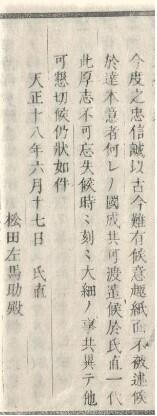 今度之忠信誠以古今難有候意趣紙面不被述候
於達本意者何レノ國成共可渡遣候於氏直一代
此厚志不可忘失候時ミ刻ミ大細ノ事共異テ他
可懇切候仍狀如件
天正十八年六月十七日　氏直
松田左馬助殿